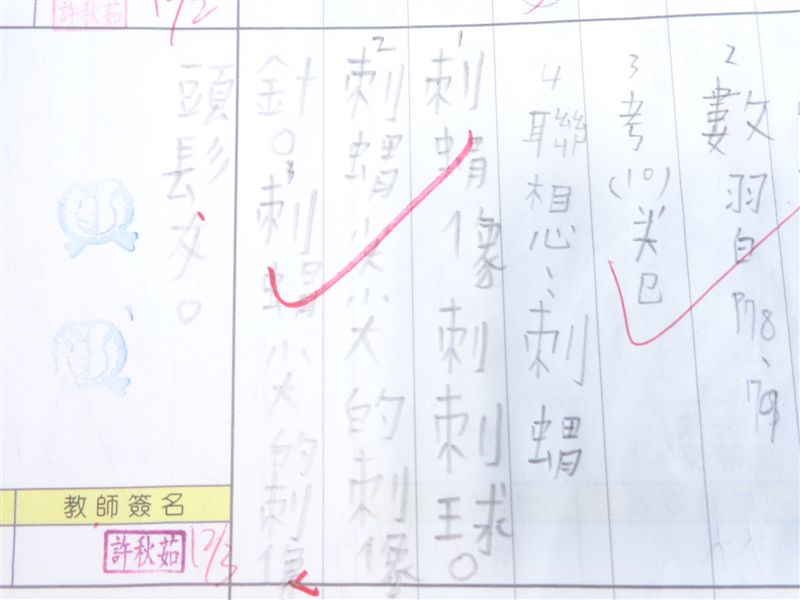 2數習P78、79
3考(10)卷
4聯想:刺蝟
1刺蝟像刺刺球。
2刺蝟尖尖的刺像
針。3刺蝟尖的刺像
頭髮。
許秋茹 12/2
教師簽名
許秋茹 12/3